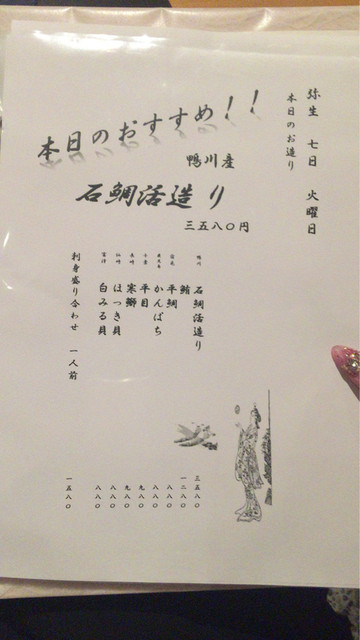 弥生 七日 火曜日
本日のお造り
本日のおすすめ!!
鴨川産
石鯛活造り
三五八〇円
鴨川 石鯛活造り 三五八〇
鮪 一二八〇
平鯛 八八〇
かんぱち 八八〇
千葉 平目 九八〇
長崎 寒鰤 九八〇
はっき貝 八八〇
富津 白みる貝 八八〇
刺身盛り合わせ 一人前 一五八〇